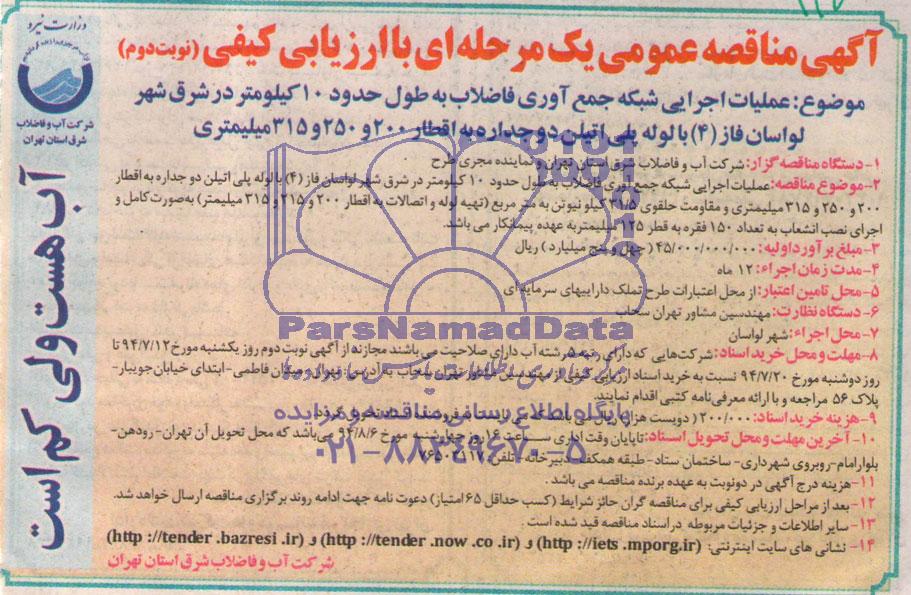 وزارت نیرو
شرکت آب و فاضلاب
شرق استان تهران
آب هست ولی کم است
آگهی مناقصه عمومی یک مرحله ای با ارزیابی کیفی (نوبت دوم)
موضوع: عملیات اجرایی شبکه جمع آوری فاضلاب به طول حدود ۱۰ کیلومتر در شرق شهر
لواسان فاز (۴) با لوله پلی اتیلن دو جداره به اقطار ۲۰۰ و ۲۵۰ و ۳۱۵ میلیمتری
۱- دستگاه مناقصه گزار: شرکت آب و فاضلاب شرق استان تهران و نماینده مجری طرح
۲- موضوع مناقصه: عملیات اجرایی شبکه جمع آوری فاضلاب به طول حدود ۱۰ کیلومتر در شرق شهر لواسان فاز (۴) با لوله پلی اتیلن دو جداره به اقطار
۲۰۰ و ۲۵۰ و ۳۱۵ میلیمتری و مقاومت حلقوی ۳۱/۵ کیلو نیوتن به متر مربع (تهیه لوله و اتصالات به اقطار ۲۰۰ و ۲۱۵ و ۳۱۵ میلیمتر) به صورت کامل و
اجرای نصب انشعاب به تعداد ۱۵۰ فقره به قطر ۱۲۵ میلیمتر به عهده پیمانکار می باشد.
۳- مبلغ برآورد اولیه: ۴۵/۰۰۰/۰۰۰/۰۰۰ (چهل و پنج میلیارد) ریال
۴- مدت زمان اجراء: ۱۲ ماه
۵- محل تامین اعتبار: از محل اعتبارات طرح تملک داراییهای سرمایه ای
۶- دستگاه نظارت: مهندسین مشاور تهران سحاب
۷- محل اجراء: شهر لواسان
۸- مهلت و محل خرید اسناد: شرکت‌هایی که دارای رتبه ۵ رشته آب دارای صلاحیت می باشند مجازند از آگهی نوبت دوم روز یکشنبه مورخ ۹۴/۷/۱۲ تا
روز دوشنبه مورخ ۹۴/۷/۲۰ نسبت به خرید اسناد ارزیابی کیفی از مهندسین مشاور تهران سحاب به آدرس: تهران- میدان فاطمی- ابتدای خیابان جویبار-
پلاک ۵۶ مراجعه و با ارائه معرفی‌نامه کتبی اقدام نمایند.
۹- هزینه خرید اسناد: ۲۰۰/۰۰۰ (دویست هزار) ریال می باشد که
۱۰- آخرین مهلت و محل تحویل اسناد: تا پایان وقت اداری ساعت ۱۶ روز چهارشنبه مورخ ۹۴/۸/۶ می‌باشد که محل تحویل آن تهران- رودهن-
بلوار امام- روبروی شهرداری- ساختمان ستاد- طبقه همکف- دبیرخانه- تلفن:
۱۱- هزینه درج آگهی در دو نوبت به عهده برنده مناقصه می باشد.
۱۲- بعد از مراحل ارزیابی کیفی برای مناقصه گران حائز شرایط (کسب حداقل ۶۵ امتیاز) دعوت نامه جهت ادامه روند برگزاری مناقصه ارسال خواهد شد.
۱۳- سایر اطلاعات و جزئیات مربوطه در اسناد مناقصه قید شده است.
۱۴- نشانی های سایت اینترنتی: (http://iets.mporg.ir) و (http://tender.now.co.ir) و (http://tender.bazresi.ir)
شرکت آب و فاضلاب شرق استان تهران
ParsNamadData
پایگاه اطلاع رسانی مناقصه و مزایده
۰۲۱-۸۸۳۴۹۶۷۰-۵